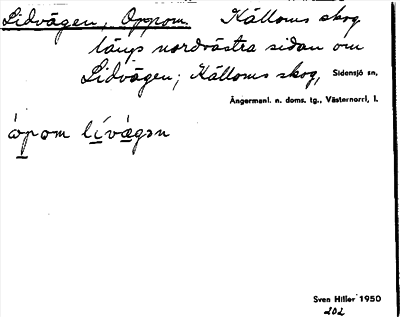 Lidvägen, Oppom Källoms skog
längs nordvästra sidan om
Lidvägen; Källoms skog, Sidensjö sn,
Ångermanl. n. doms. tg., Västernorrl, l.
ópom lívägən
Sven Hiller 1950
202